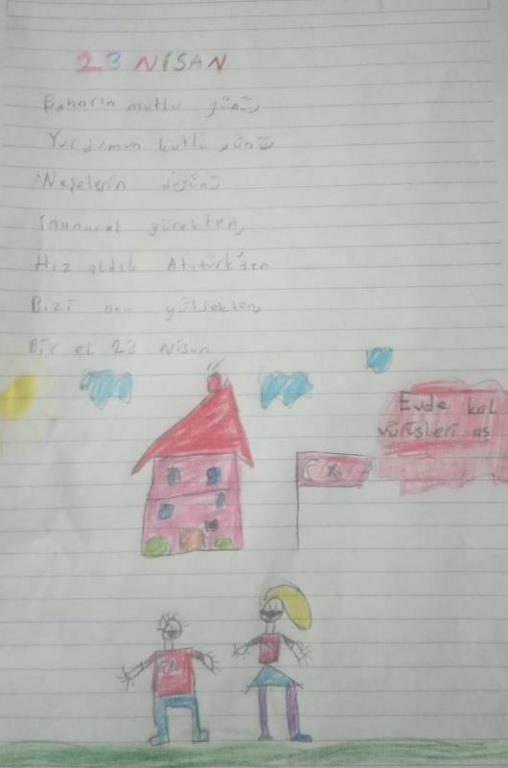 23 NİSAN
Baharın mutlu günü
Yurdumun kutlu günü
Neşelerin düğünü
İnanarak yürekten,
Hız aldık Atatürk'ten
Bizi yüksekten
Bir el 23 Nisan
Evde kal
virüsleri aş